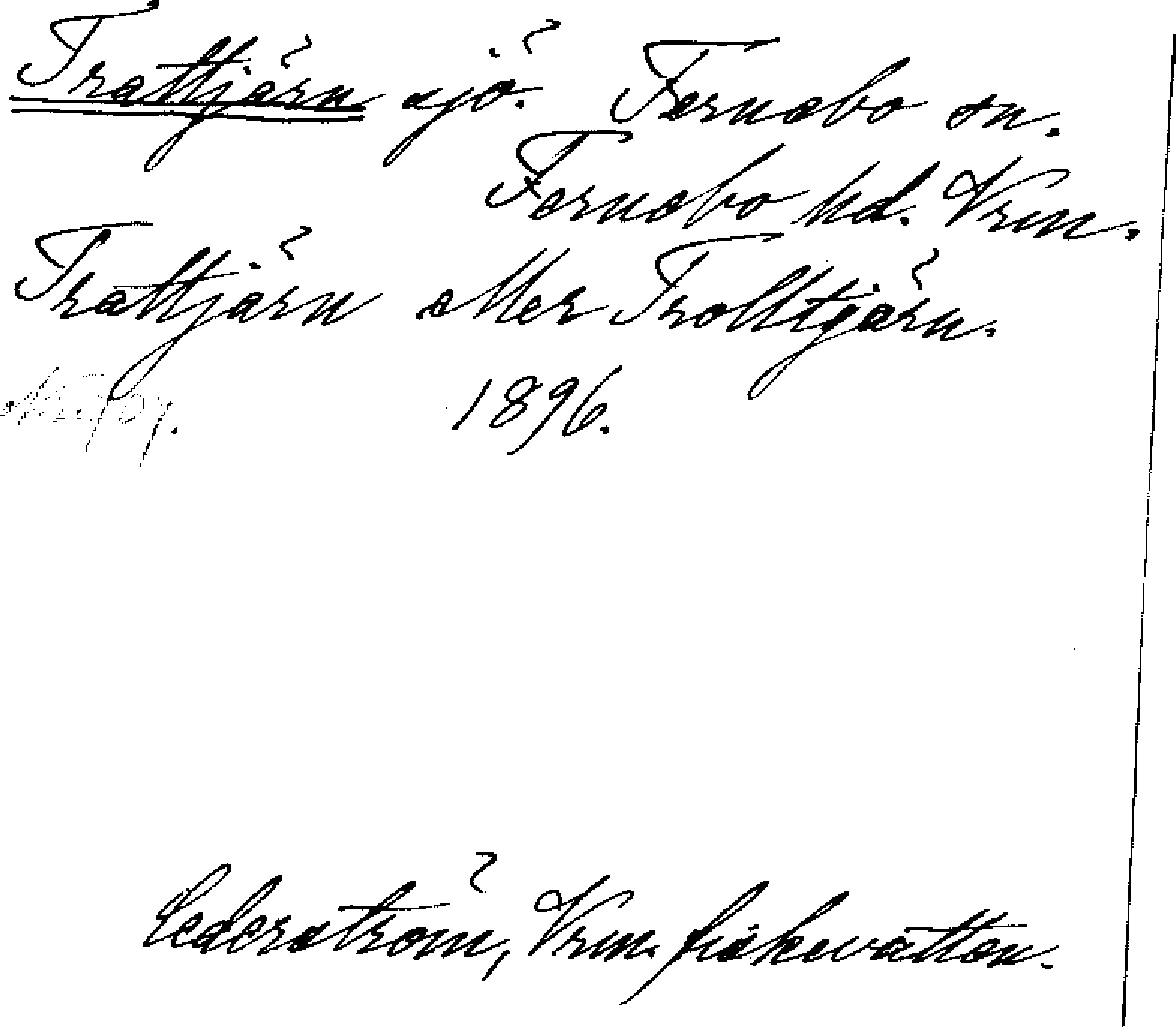 Trattjärn sjö. Fernebo sn.
Fernebo hd. Vrm.
Trättjärn eller Trolltjärn.
1896.
Cederström, Vrm. fiskevatten.